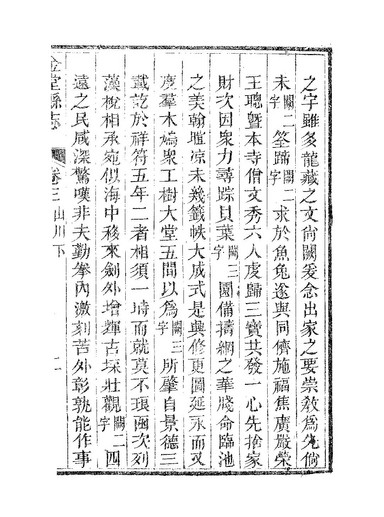 之字雖多龍藏之文尙闕爰念出家之要崇敎爲先倘
未闕二字筌蹄闕二字求於魚兔遂與同儕施福焦廣嚴榮
王聰曁本寺僧文秀六人虔歸三寶共發一心先捨家
財次因衆力尋踪貝葉闕三字園備擣網之華牋命臨池
之美翰暄凉未幾籤帙大成式是興修更圖延永而又
度羣木僝衆工樹大堂五間以爲闕三字所肇自景德三
載訖於祥符五年二者相須一時而就莫不琅函次列
藻梲相承宛似海中移來劍外增輝古埰壯觀闕二字四
遠之民咸深驚嘆非夫勤拳內激刻苦外彰孰能作事
金堂縣志
卷三
山川下